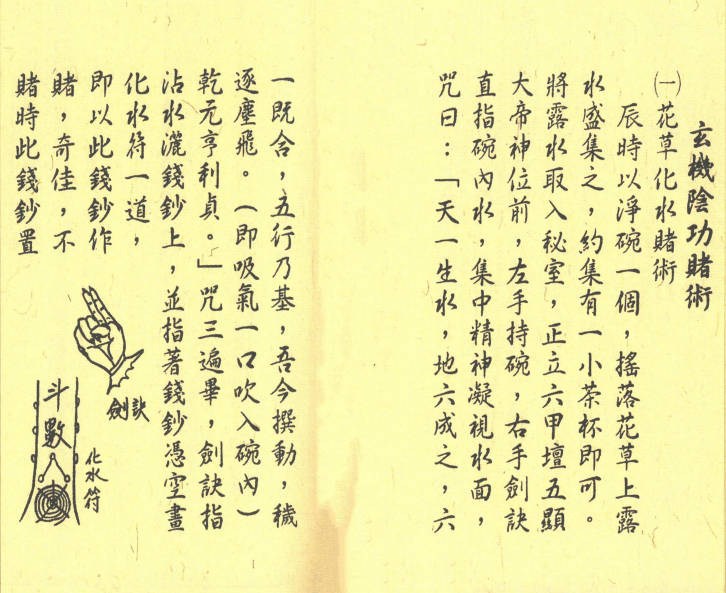 玄機陰功賭術
㈠花草化水賭術
辰時以淨碗一個，搖落花草上露
水盛集之，約集有一小茶杯即可。
將露水取入秘室，正立六甲壇五顯
大帝神位前，左手持碗，右手劍訣
直指碗內水，集中精神凝視水面，
咒曰：「天一生水，地六成之，六
一既含，五行乃基，吾今撰動，穢
逐塵飛。（即吸氣一口吹入碗內）
乾元亨利貞。」咒三遍畢，劍訣指
沾水灑錢鈔上，並指著錢鈔憑空畫
化水符一道，
即以此錢鈔作
賭，奇佳，不
賭時此錢鈔置
劍訣
斗數
化水符